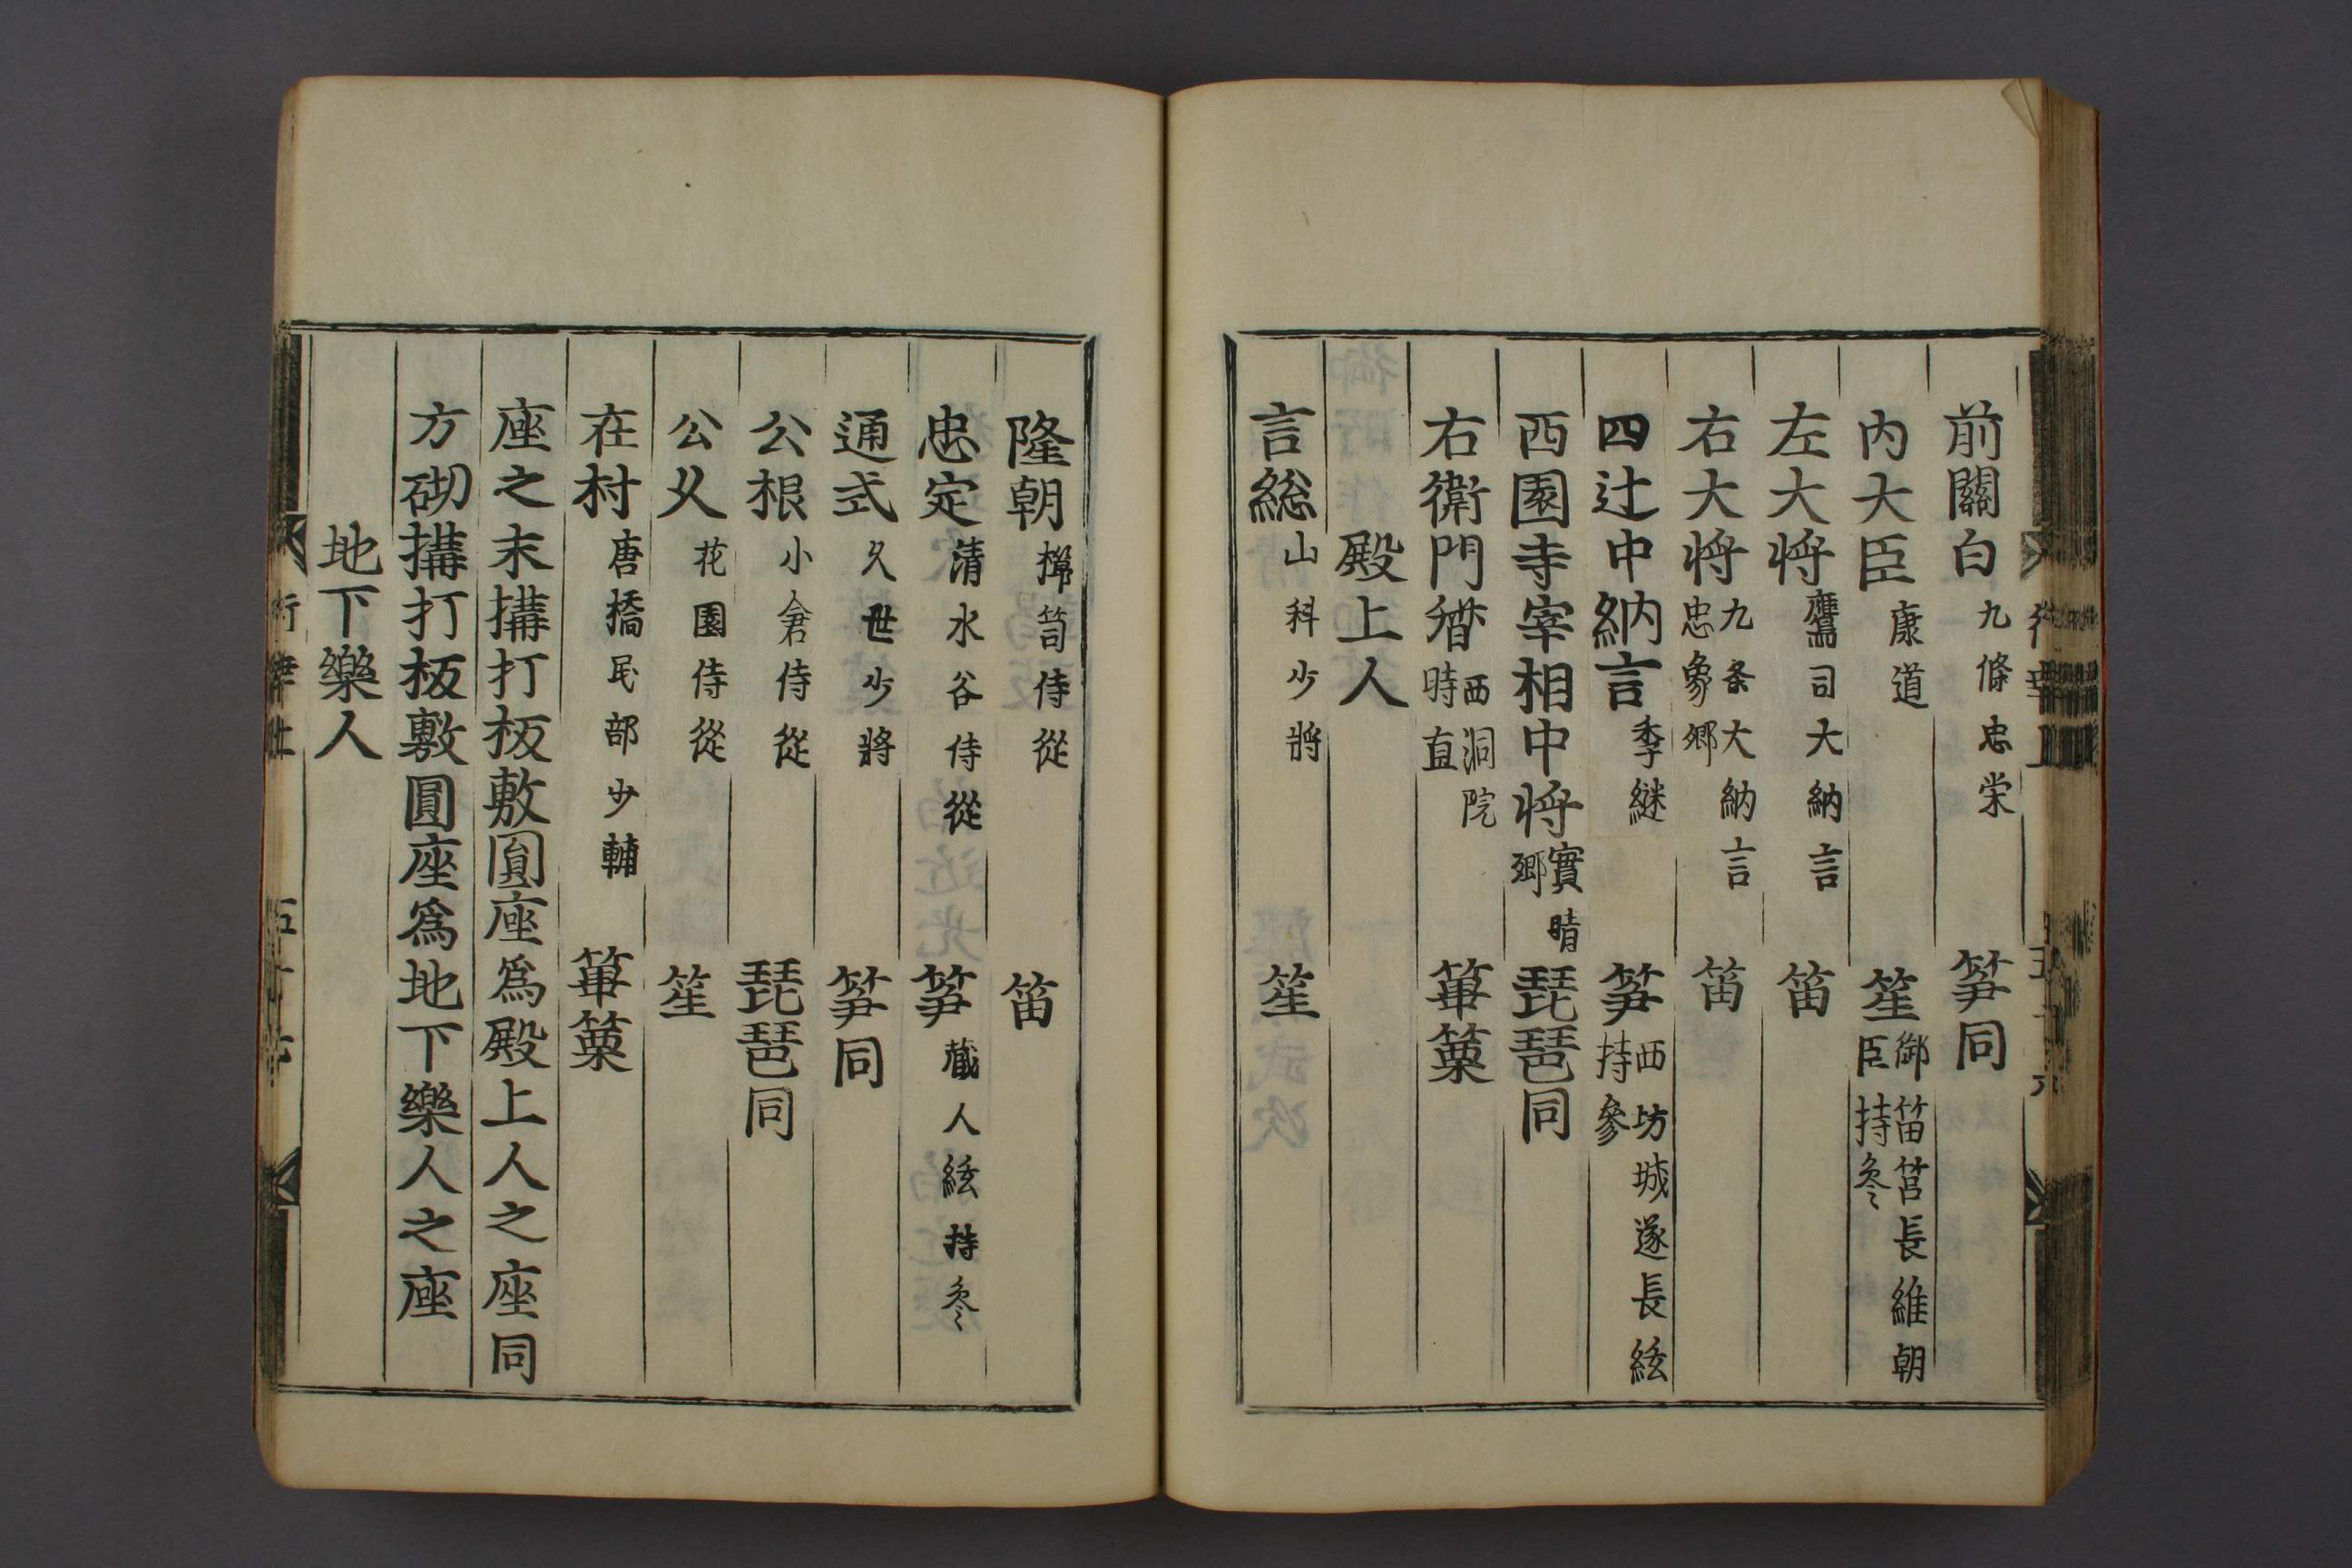 前關白 九條忠栄 筝同
内大臣 康道 笙 御笛筥長維朝臣持参
左大将 鷹司大納言 笛
右大将 九条大納言忠象郷 笛
四辻中納言 季継 筝 西坊城遂長絃持參
西園寺宰相中将 實晴郷 琵琶同
右衛門督 西洞院時直 篳篥
殿上人
言総 山科少将 笙
隆朝 櫛笥侍從 笛
忠定 清水谷侍從 筝 蔵人絃持参
通式 久世少將 筝同
公根 小倉侍從 琵琶同
公乂 花園侍從 笙
在村 唐橋民部少輔 篳篥
座之末搆打板敷圓座爲殿上人之座同
方砌搆打板敷圓座爲地下樂人之座
地下樂人